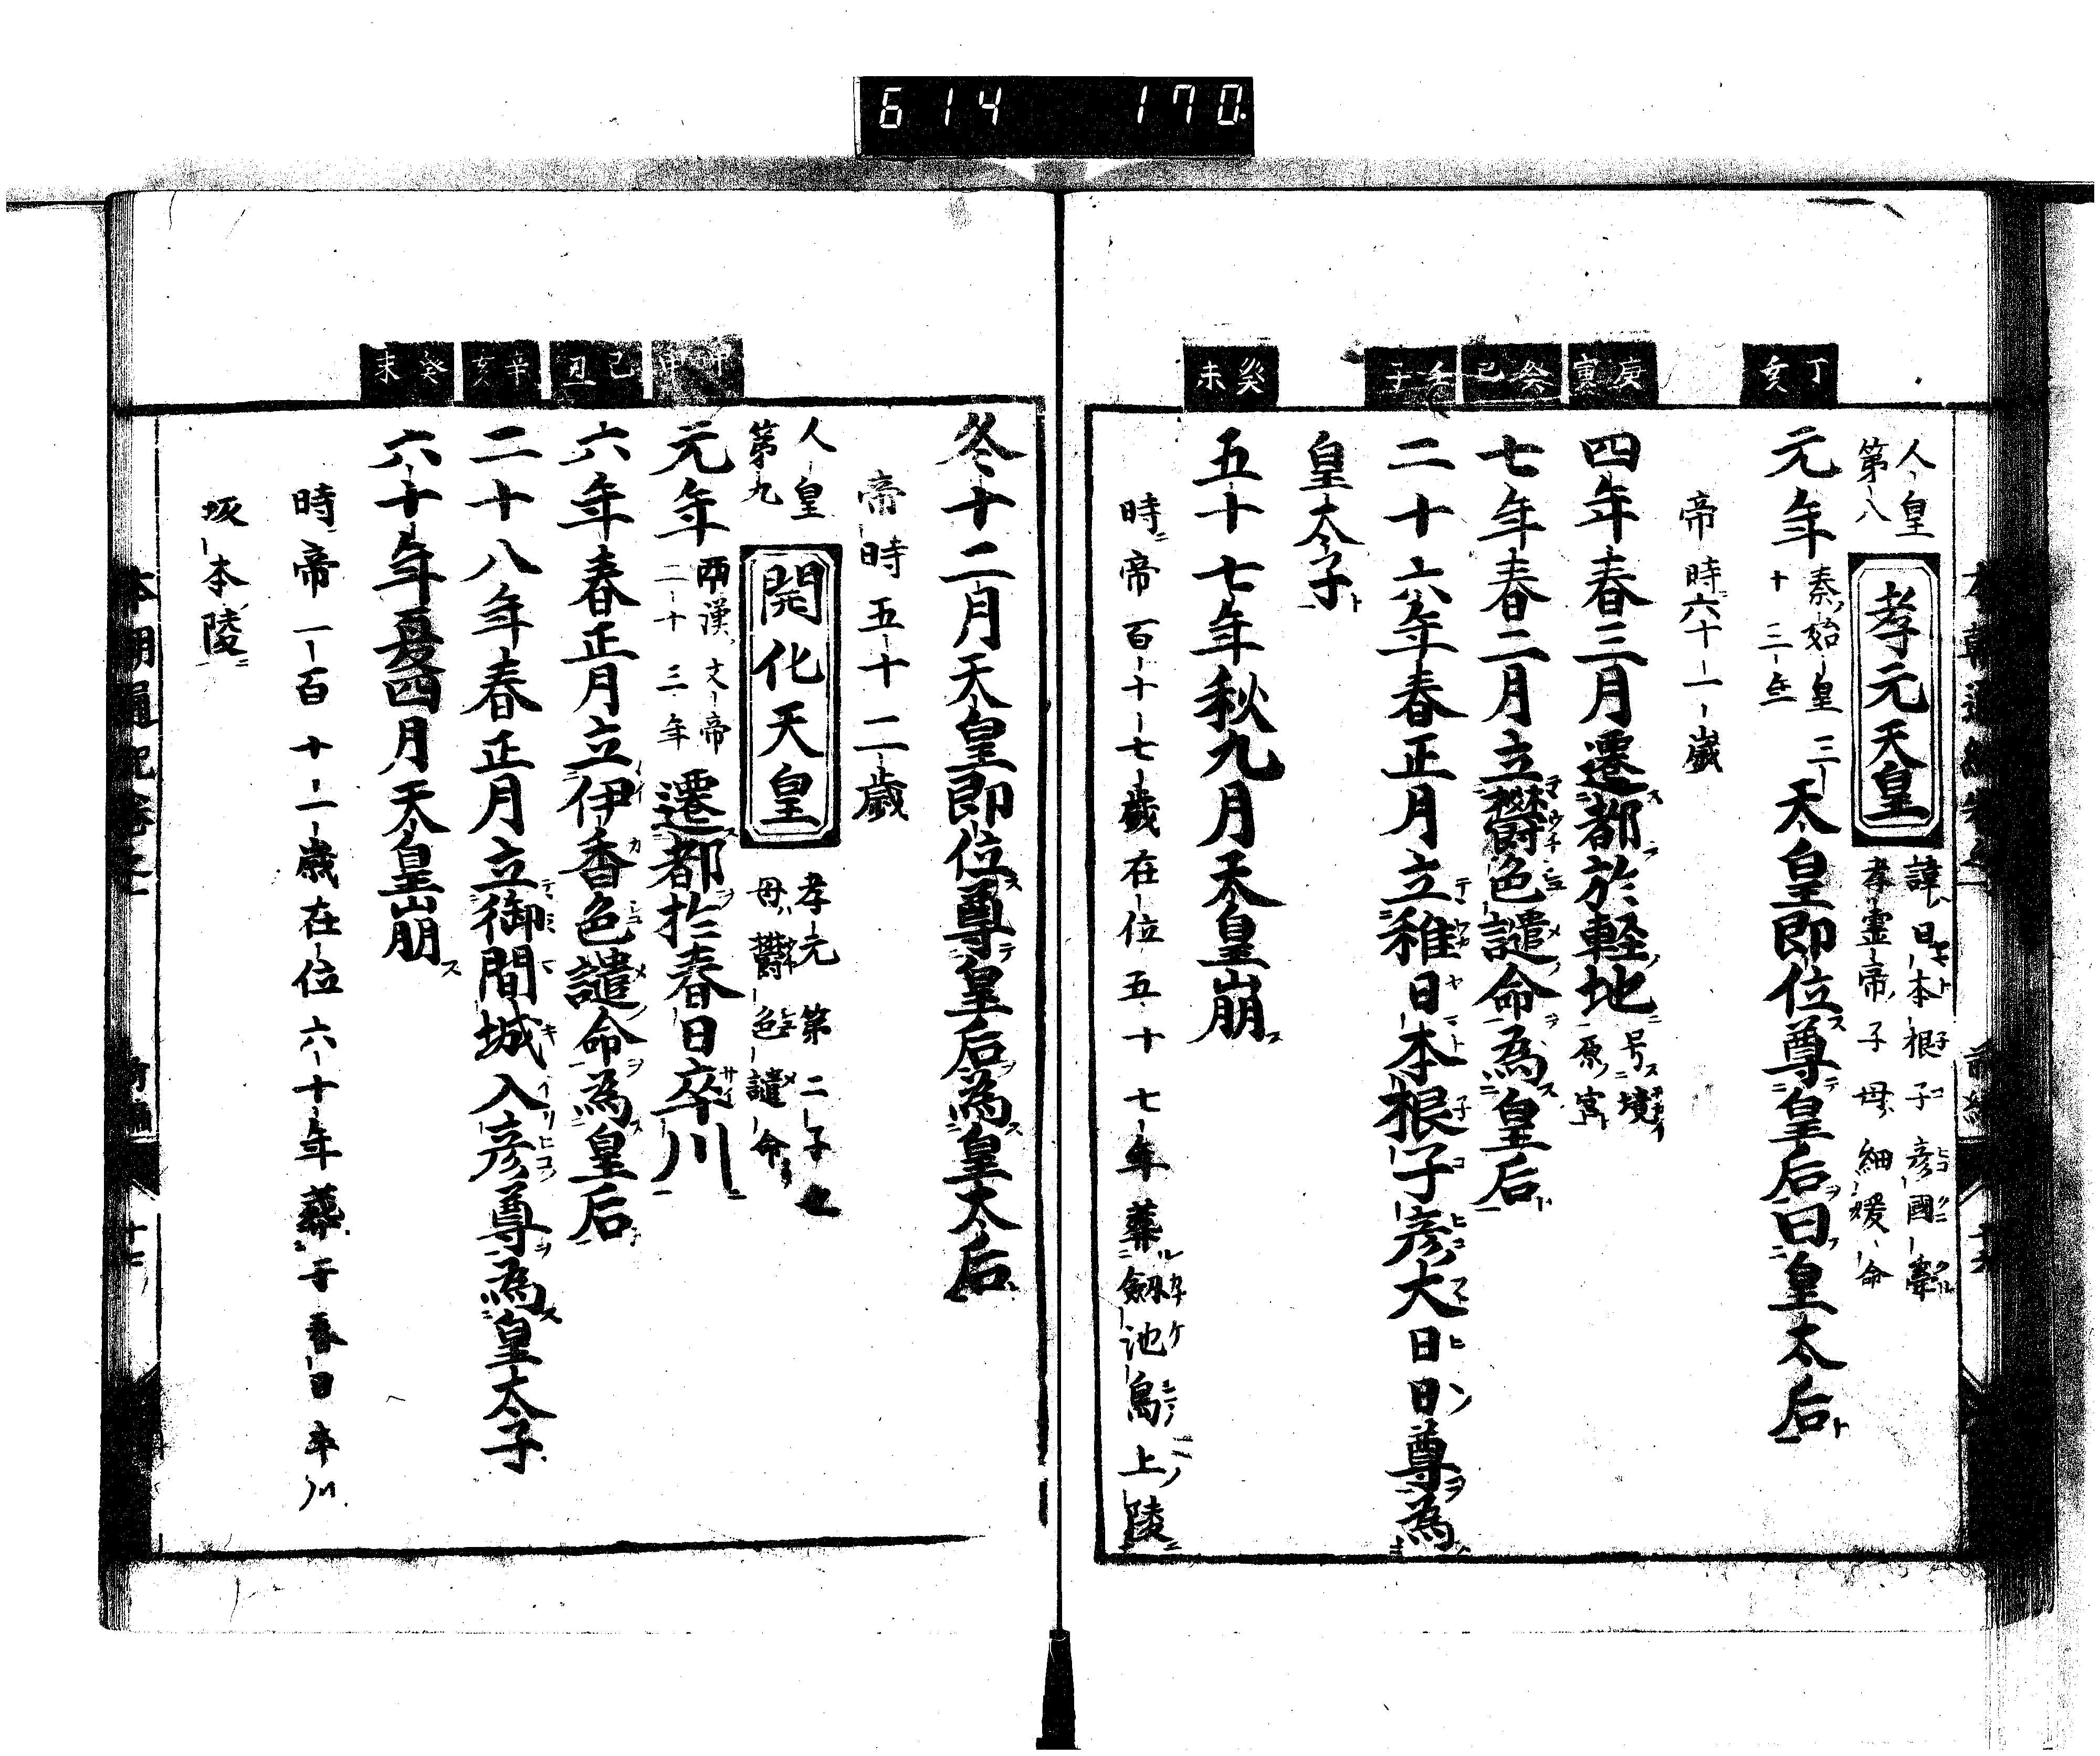 614 170
人皇
第八
孝元天皇
諱日本根子彦國牽
孝霊帝子母細媛命
丁亥
元年
秦始皇三
十三年
天皇即位尊皇后曰皇太后
帝時六十一歳
庚寅
四年春三月遷都於軽地
号境
原宮
癸巳
七年春二月立欝色譴命為皇后
壬子
二十六年春正月立稚日本根子彦大日日尊為
皇太子
癸未
五十七年秋九月天皇崩
時帝百十七歳在位五十七年葬劔池嶋上陵
冬十二月天皇即位尊皇后為皇太后
帝時五十二歳
人皇
第九
開化天皇
孝元第二子也
母欝色譴命
甲申
元年
両漢文帝
二十三年
遷都於春日卒川
己丑
六年春正月立伊香色譴命為皇后
辛亥
二十八年春正月立御間城入彦尊為皇太子
癸未
六十年夏四月天皇崩
時帝一百十一歳在位六十年葬于春日卒川
坂本陵
本朝通紀巻之一 前編 十七